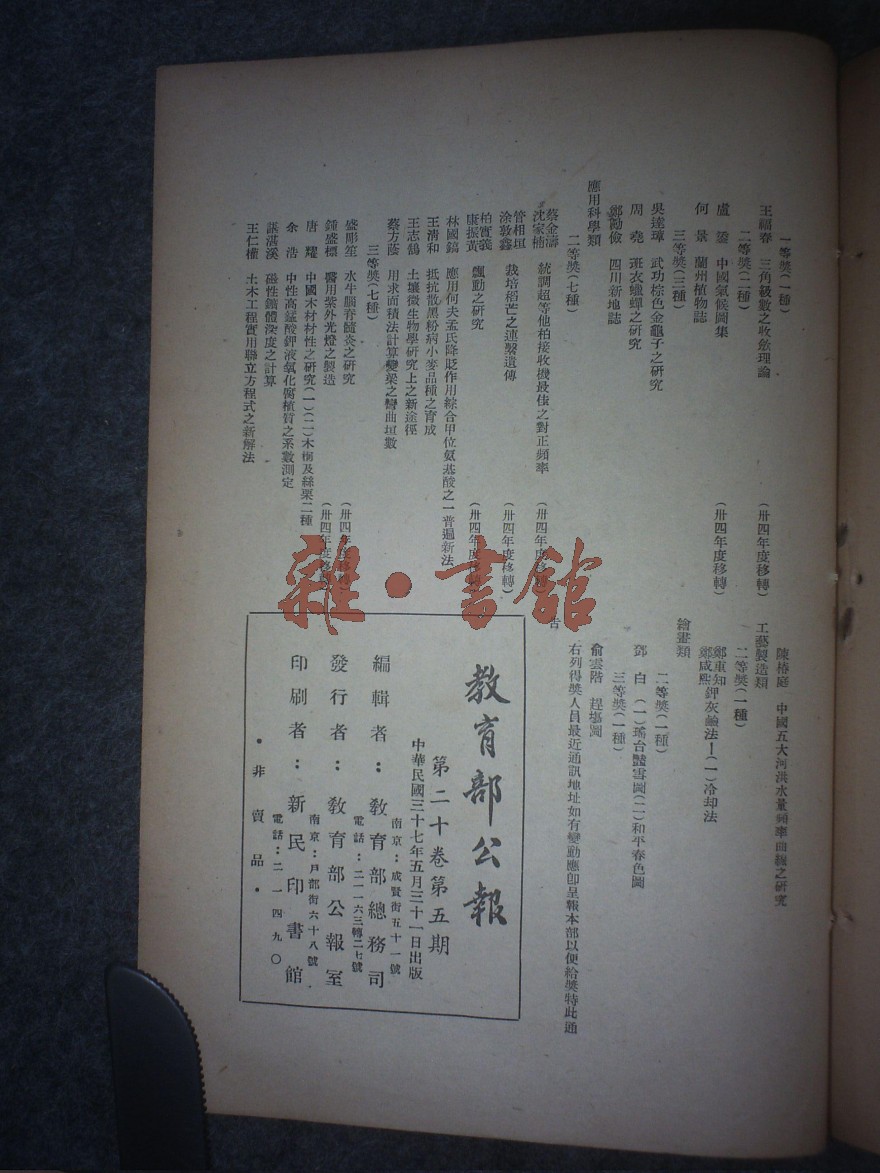 一等獎(一種)
王福春　三角級數之收斂理論　(卅四年度移轉)
二等獎(二種)
盧鋈　中國氣候圖集　(卅四年度移轉)
何景　蘭州植物誌
三等獎(三種)
吳達璋　武功棕色金龜子之研究
周堯　斑衣蠟蟬之研究
鄭勵儉　四川新地誌
應用科學類
二等獎(七種)
蔡金濤
沈家楠　統調超等他柏接收機最佳之對正頻率　(卅四年度移轉)
管相垣
涂敦鑫　栽培稻芒之連繫遺傳　(卅四年度移轉)
柏實義
康振黃　飄動之研究　(卅四年度移轉)
林國鎬　應用何夫孟氏降貶作用綜合甲位氨基酸之一普遍新法
王清和　抵抗散黑粉病小麥品種之育成
王志鵠　土壤微生物學研究上之新途徑
蔡方蔭　用求面積法計算變梁之彎曲垣數
三等獎(七種)
盛彤笙　水牛腦脊髓炎之研究　(卅四年度移轉)
鍾盛標　醫用紫外光燈之製造　(卅四年度移轉)
唐燿　中國木材材性之研究(一)(二)木樹及絲栗二種
余浩　中性高錳酸鉀液氧化腐植質之系數測定
諶湛溪　磁性鑛體深度之計算
王仁權　土木工程實用聯立方程式之新解法
陳椿庭　中國五大河洪水量頻率曲線之研究
工藝製造類
二等獎(一種)
鄭重知
鄭成熙　鉀灰鹼法—(一)冷却法
繪畫類
二等獎(一種)
鄧白　(一)瑤台豔雪圖(二)和平春色圖
三等獎(一種)
俞雲階
右列得獎人員最近通訊地址如有變動應卽呈報本部以便給獎特此通
告
教育部公報
第二十卷第五期
中華民國三十七年五月三十一日出版
編輯者：教育部總務司
南京：成賢街五十一號
電話：二一一六三轉二七號
發行者：教育部公報室
印刷者：新民印書館
南京：戸部街六十八號
電話：二一四九〇
·非賣品·
雜·書館